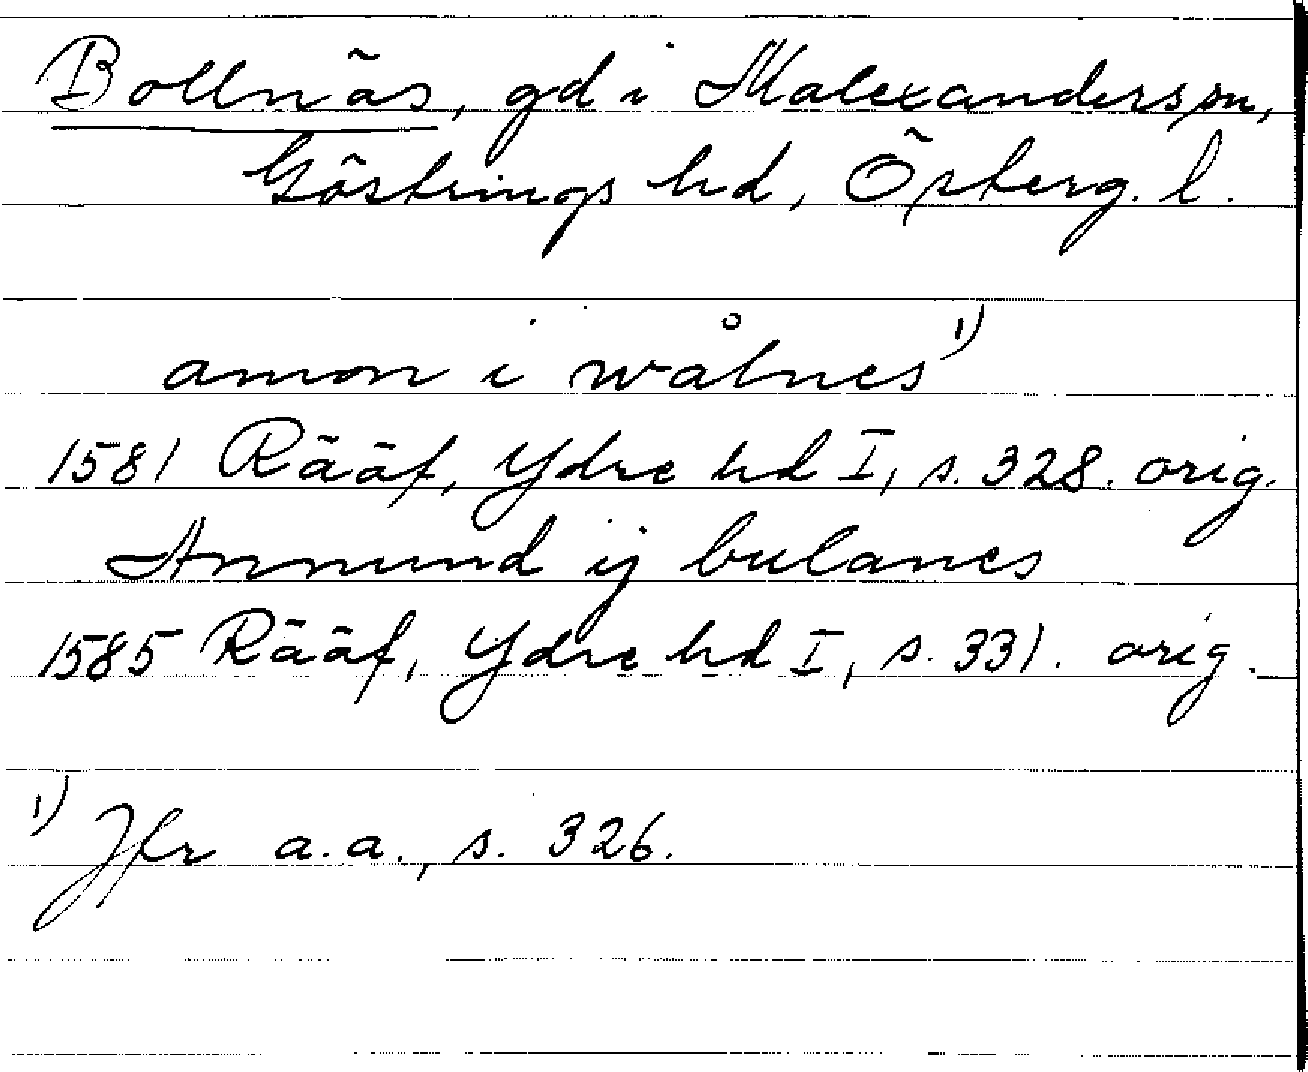 Bollnäs, gd i Malexanders sn,
Göstrings hd, Österg. l.
amon i wålnes 1)
1581 Rääf, Ydre hd I, s. 328. orig.
Anmund ij bulanes
1585 Rääf, Ydre hd I, s. 331. orig.
1) Jfr a.a., s. 326.